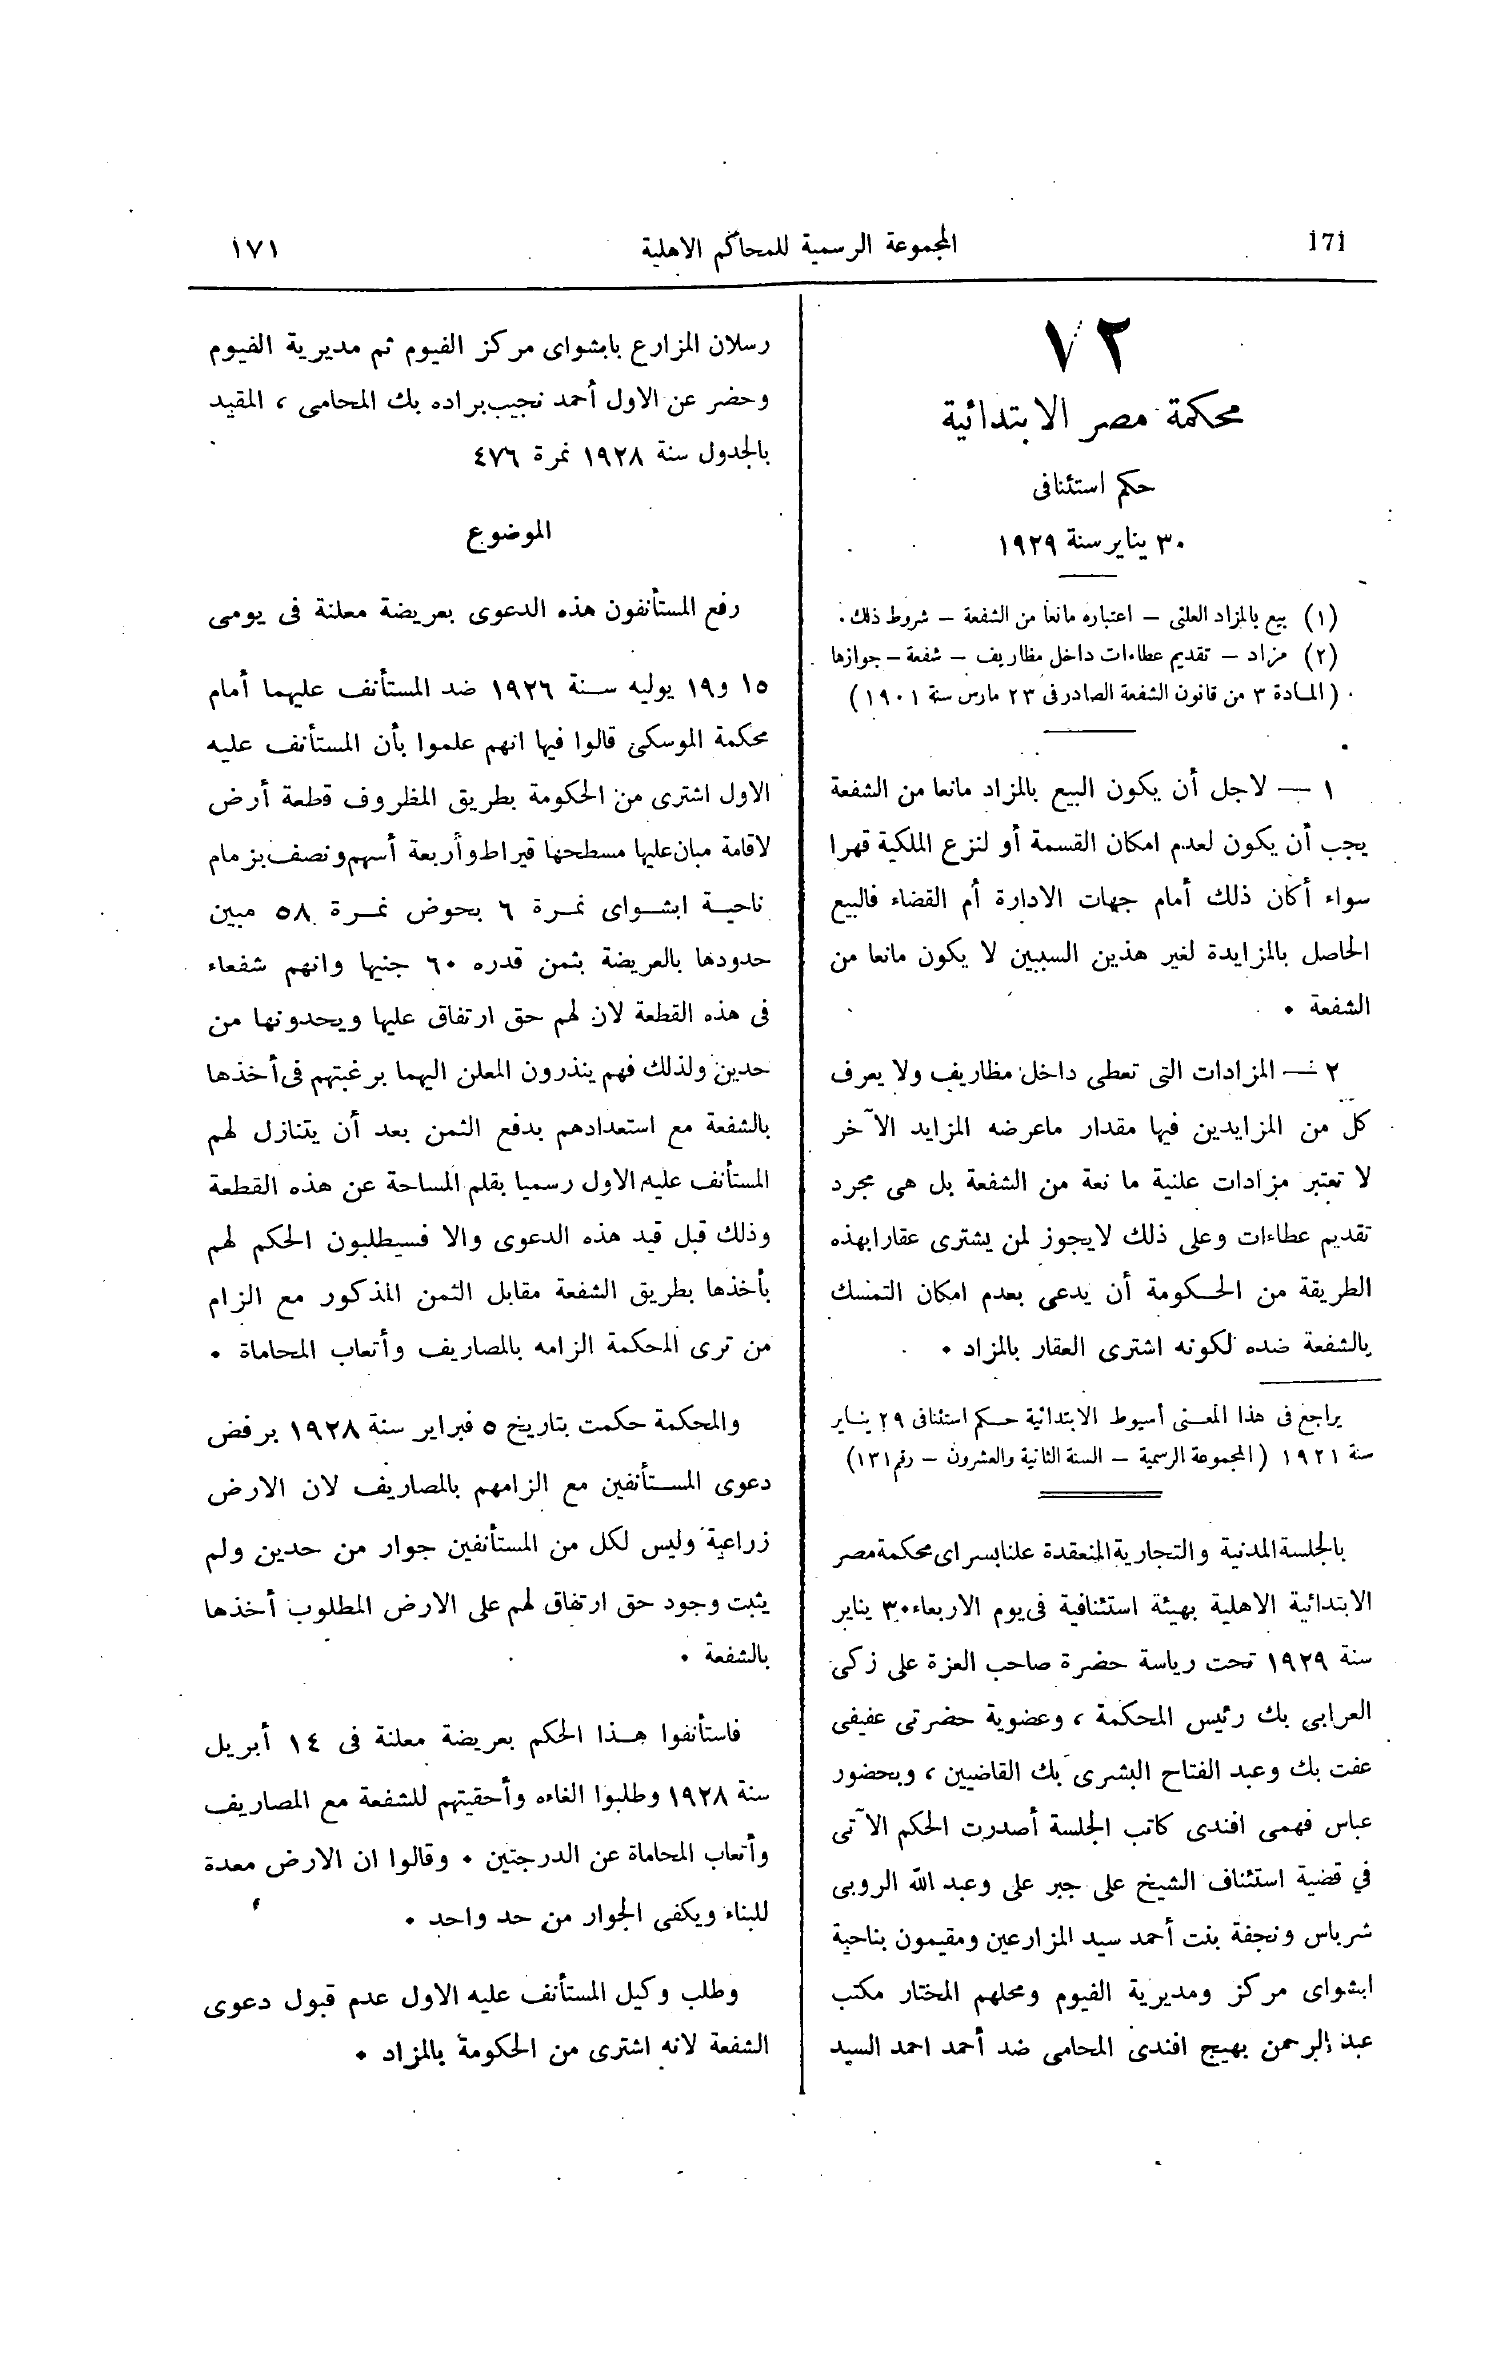 171
المجموعة الرسمية للمحاكم الاهلية
١٧١
٧٢
محكمة مصر الابتدائية
حكم استئنافى
٣٠ يناير سنة ١٩٢٩
(١) بيع بالمزاد العلنى – اعتباره مانعا من الشفعة – شروط ذلك.
(٢) مزاد – تقديم عطاءات داخل مظاريف – شفعة – جوازها
(المادة ٣ من قانون الشفعة الصادر فى ٢٣ مارس سنة ١٩٠١)
١ — لاجل أن يكون البيع بالمزاد مانعا من الشفعة
يجب أن يكون لعدم امكان القسمة أو لنزع الملكية قهرا
سواء أكان ذلك أمام جهات الادارة أم القضاء فالبيع
الحاصل بالمزايدة لغير هذين السببين لا يكون مانعا من
الشفعة .
٢ — المزادات التى تعطى داخل مظاريف ولا يعرف
كل من المزايدين فيها مقدار ماعرضه المزايد الآخر
لا تعتبر مزادات علنية مانعة من الشفعة بل هى مجرد
تقديم عطاءات وعلى ذلك لايجوز لمن يشترى عقارا بهذه
الطريقة من الحكومة أن يدعى بعدم امكان التمسك
بالشفعة ضده لكونه اشترى العقار بالمزاد .
يراجع فى هذا المعنى أسيوط الابتدائية حكم استئنافى ٢٩ يناير
سنة ١٩٢١ (المجموعة الرسمية – السنة الثانية والعشرون – رقم ١٣١)
بالجلسة المدنية والتجارية المنعقدة علنا بسراى محكمة مصر
الابتدائية الاهلية بهيئة استئنافية فى يوم الاربعاء ٣٠ يناير
سنة ١٩٢٩ تحت رياسة حضرة صاحب العزة على زكى
العرابى بك رئيس المحكمة ، وعضوية حضرتى عفيفى
عفت بك وعبد الفتاح البشرى بك القاضيين ، وبحضور
عباس فهمى افندى كاتب الجلسة أصدرت الحكم الآتى
في قضية استئناف الشيخ على جبر على وعبد الله الروبى
شرباس ونجفة بنت أحمد سيد المزارعين ومقيمون بناحية
ابشواى مركز ومديرية الفيوم ومحلهم المختار مكتب
عبد الرحمن بهيج افندى المحامى ضد أحمد احمد السيد
رسلان المزارع بابشواى مركز الفيوم ثم مديرية الفيوم
وحضر عن الاول أحمد نجيب براده بك المحامى ، المقيد
بالجدول سنة ١٩٢٨ نمرة ٤٧٦
الموضوع
رفع المستأنفون هذه الدعوى بعريضة معلنة فى يومى
١٥ و١٩ يوليه سنة ١٩٢٦ ضد المستأنف عليهما أمام
محكمة الموسكى قالوا فيها انهم علموا بأن المستأنف عليه
الاول اشترى من الحكومة بطريق المظروف قطعة أرض
لاقامة مبان عليها مسطحها قيراط وأربعة أسهم ونصف بزمام
ناحية ابشواى نمرة ٦ بحوض نمرة ٥٨ مبين
حدودها بالعريضة بثمن قدره ٦٠ جنيها وانهم شفعاء
فى هذه القطعة لان لهم حق ارتفاق عليها ويحدونها من
حدين ولذلك فهم ينذرون المعلن اليهما برغبتهم فى أخذها
بالشفعة مع استعدادهم بدفع الثمن بعد أن يتنازل لهم
المستأنف عليه الاول رسميا بقلم المساحة عن هذه القطعة
وذلك قبل قيد هذه الدعوى والا فسيطلبون الحكم لهم
بأخذها بطريق الشفعة مقابل الثمن المذكور مع الزام
من ترى المحكمة الزامه بالمصاريف وأتعاب المحاماة .
والمحكمة حكمت بتاريخ ٥ فبراير سنة ١٩٢٨ برفض
دعوى المستأنفين مع الزامهم بالمصاريف لان الارض
زراعية وليس لكل من المستأنفين جوار من حدين ولم
يثبت وجود حق ارتفاق لهم على الارض المطلوب أخذها
بالشفعة .
فاستأنفوا هذا الحكم بعريضة معلنة فى ١٤ أبريل
سنة ١٩٢٨ وطلبوا الغاءه وأحقيتهم للشفعة مع المصاريف
وأتعاب المحاماة عن الدرجتين . وقالوا ان الارض معدة
للبناء ويكفى الجوار من حد واحد .
وطلب وكيل المستأنف عليه الاول عدم قبول دعوى
الشفعة لانه اشترى من الحكومة بالمزاد .